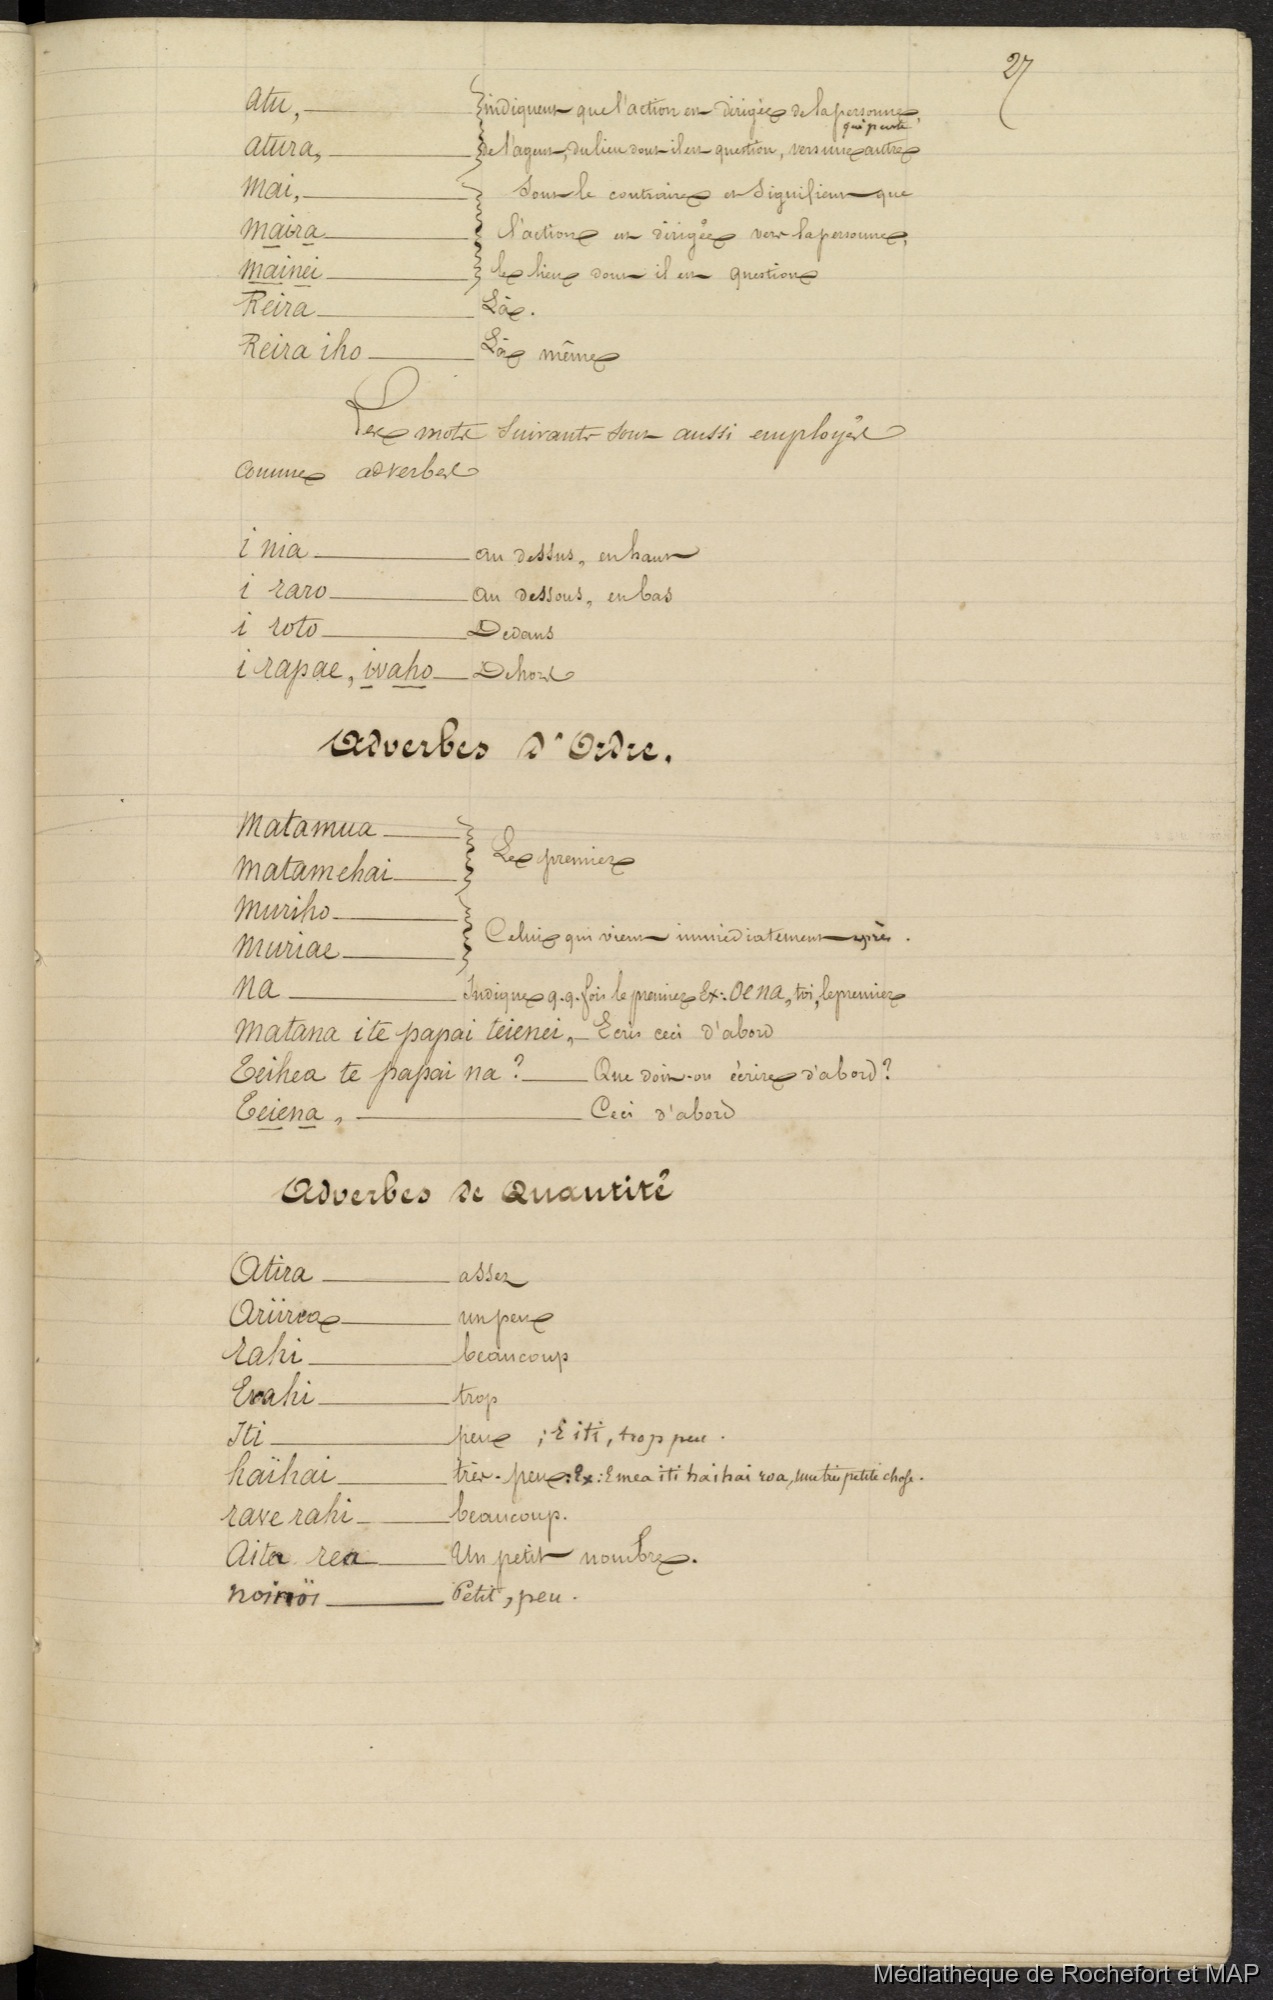 27
atu, indiquent que l'action est dirigée de la personne,
qui parle
atura, de l'agent, du lieu dont il est question, vers une autre
mai, Sont le contraire et signifient que
maira l'action est dirigée vers la personne,
mainei le lieu dont il est question
Reira Là.
Reira iho Là même
Les mots suivants sont aussi employés
comme adverbes
i nia au dessus, en haut
i raro au dessous, en bas
i roto Dedans
i rapae, ivaho Dehors
Adverbes d'Ordre.
Matamua
Le premier
Matamehai
Muriho
Celui qui vient immédiatement après.
Muriae
na Indique q.q. fois le premier Ex: Oe na, toi, le premier
Matana i te papai teienei, Ecris ceci d'abord
Teihea te papai na? Que doit-on écrire d'abord?
Teiena, Ceci d'abord
Adverbes de Quantité
Atira assez
Ariirea un peu
rahi beaucoup
Erahi trop
Iti peu ; E iti, trop peu.
haïhai très-peu: Ex: E mea iti haihai roa, une très petite chose.
rave rahi beaucoup.
Aita rea Un petit nombre.
noinoï Petit, peu.
Médiathèque de Rochefort et MAP